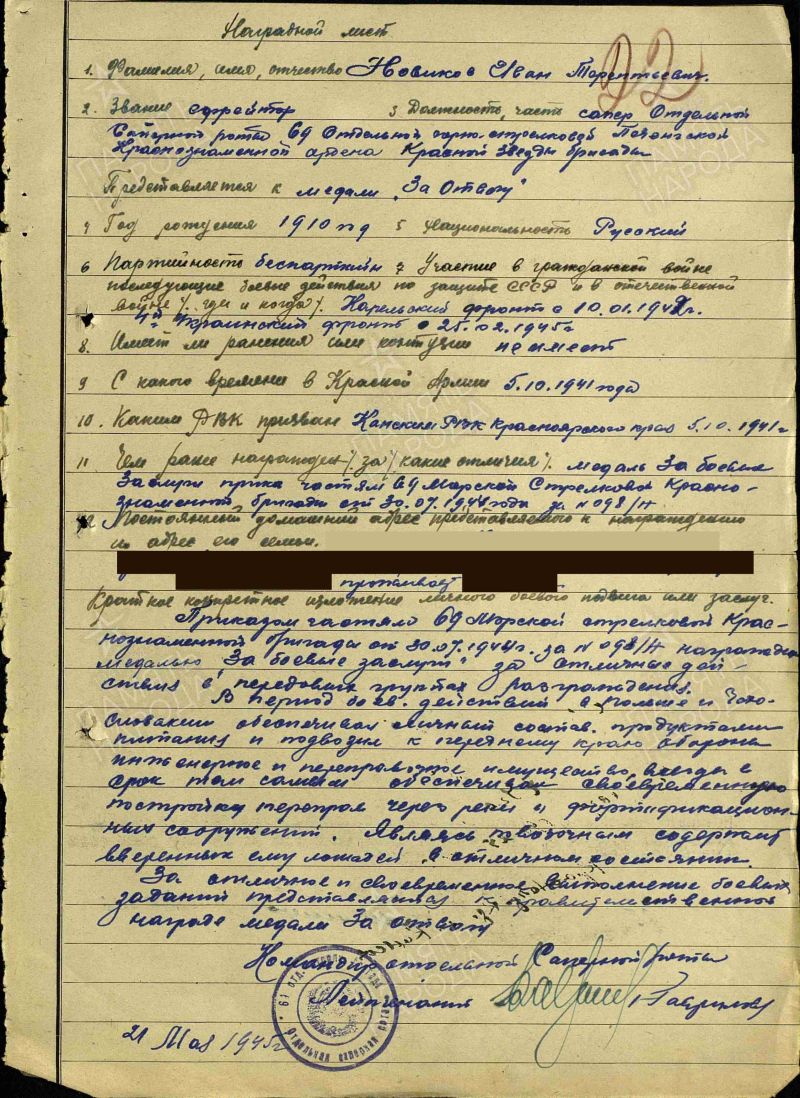 Наградной лист
22
1. Фамилия, имя, отчество Новиков Иван Терентьевич.
2. Звание ефрейтор 3 Должность, часть сапер Отдельной
Саперной роты 69 Отдельной горно-стрелковой Печенгской
Краснознаменной ордена Красной Звезды бригады
Представляется к медали „За Отвагу"
4 Год рождения 1910 год 5 Национальность Русский
6 Партийность беспартийн 7 Участие в гражданской войне
последующие боевые действия по защите СССР и в отечественной
войне /. где и когда/. Карельский фронт с 10.01.1942г.
4й Украинский фронт с 25.02.1945г
8. Имеет ли ранения или контузии не имеет
9 С какого времени в Красной Армии 5.10.1941 года
10. Каким РВК призван Канским РВК Красноярского края 5.10.1941г
11 Чем ранее награжден /. за / какие отличия /. медаль За боевые
Заслуги приказ частям 69 Морской Стрелковой Красно-
знаменной бригады от 30.07.1944 года за № 098/Н
12 Постоянный домашний адрес представляемого к награждению
и адрес его семьи.
проживает
Краткое конкретное изложение личного боевого подвига или заслуг.
Приказом частям 69 Морской стрелковой Крас-
нознаменной бригады от 30.07.1944г. за № 098/Н награжден
медалью „За боевые заслуги" за отличные дей-
ствия в передовых группах разграждения.
В период боев. действий в Польше и Чехо-
словакии обеспечивал личный состав. продуктами
питания и подвозил к переднему краю обороны
инженерное и переправочное имущество, всегда в
срок тем самым обеспечивая своевременную
постройку переправ через реки и фортификацион-
ных сооружений. Являясь повозочным содержит
вверенных ему лошадей в отличном состоянии.
За отличное и своевременное выполнение боевых
заданий представляется к правительственной
награде медали За отвагу
Командир отдельной Саперной роты
Лейтенант Гаврилов
Отдельная саперная рота
21 Мая 1945г